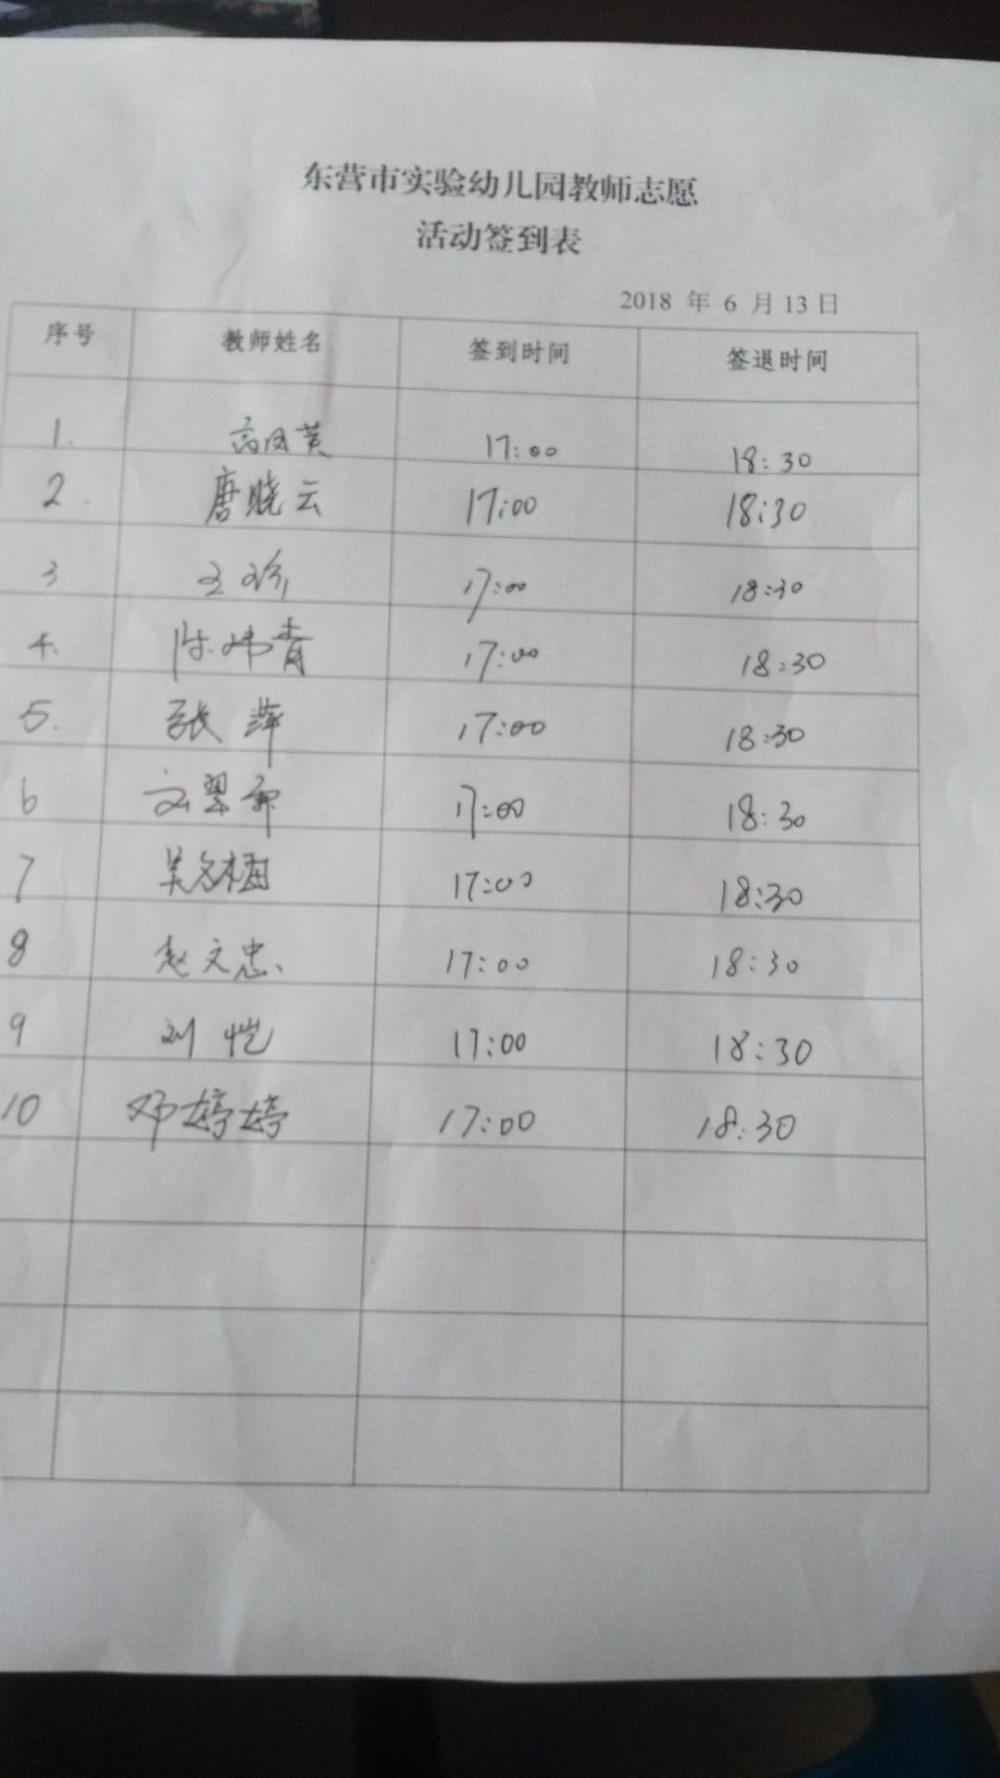 东营市实验幼儿园教师志愿
活动签到表
2018 年 6 月 13 日
序号 教师姓名 签到时间 签退时间
1. 高凤英 17:00 18:30
2. 唐晓云 17:00 18:30
3 王珍 17:00 18:30
4. 陈炜青 17:00 18:30
5. 张萍 17:00 18:30
6 17:00 18:30
7 17:00 18:30
8 赵文忠 17:00 18:30
9 刘恺 17:00 18:30
10 邓婷婷 17:00 18:30